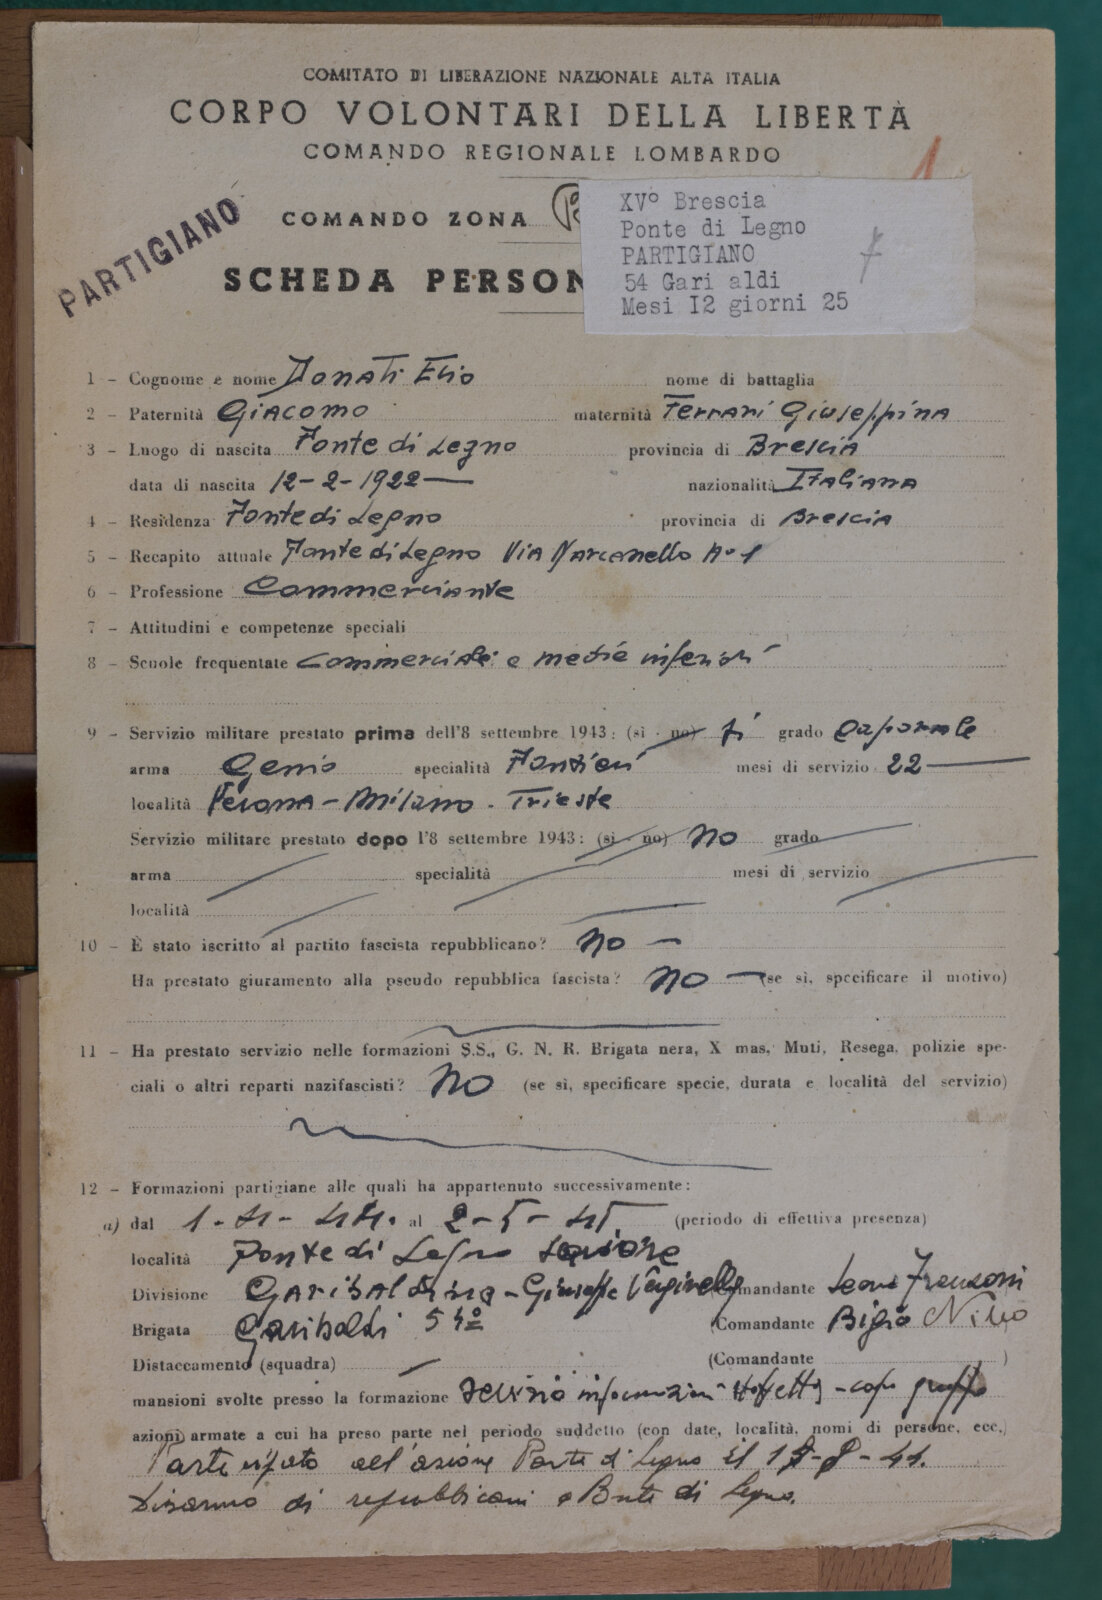 COMITATO DI LIBERAZIONE NAZIONALE ALTA ITALIA
CORPO VOLONTARI DELLA LIBERTÀ
COMANDO REGIONALE LOMBARDO
COMANDO ZONA
PARTIGIANO
SCHEDA PERSON
XV° Brescia
Ponte di Legno
PARTIGIANO
54 Gari aldi
Mesi I2 giorni 25
7
1 - Cognome e nome Donati Elio nome di battaglia
2 - Paternità Giacomo maternità Ferrari Giuseppina
3 - Luogo di nascita Ponte di Legno provincia di Brescia
data di nascita 12-2-1922 nazionalità Italiana
4 - Residenza Ponte di Legno provincia di Brescia
5 - Recapito attuale Ponte di Legno Via Narcanello N° 1
6 - Professione Commerciante
7 - Attitudini e competenze speciali
8 - Scuole frequentate Commerciali e medie inferiori
9 - Servizio militare prestato prima dell'8 settembre 1943: (sì - no) sì grado Caporale
arma Genio specialità Pontieri mesi di servizio 22
località Verona - Milano - Trieste
Servizio militare prestato dopo l'8 settembre 1943: (sì - no) No grado
arma specialità mesi di servizio
località
10 - È stato iscritto al partito fascista repubblicano? No
Ha prestato giuramento alla pseudo repubblica fascista? No (se sì, specificare il motivo)
11 - Ha prestato servizio nelle formazioni S.S., G. N. R. Brigata nera, X mas, Muti, Resega, polizie spe-
ciali o altri reparti nazifascisti? No (se sì, specificare specie, durata e località del servizio)
12 - Formazioni partigiane alle quali ha appartenuto successivamente:
a) dal al 2-5-45 (periodo di effettiva presenza)
località Ponte di Legno Saviore
Divisione Garibaldina - Giuseppe Verginella Comandante Leone Franzoni
Brigata Garibaldi 54° (Comandante Bigio Nino
Distaccamento (squadra) (Comandante )
mansioni svolte presso la formazione servizio informazioni staffetta - capo gruppo
azioni armate a cui ha preso parte nel periodo suddetto (con date, località, nomi di persone, ecc.)
all'azione Ponte di Legno il
Disarmo di repubblicani a Ponte di Legno.